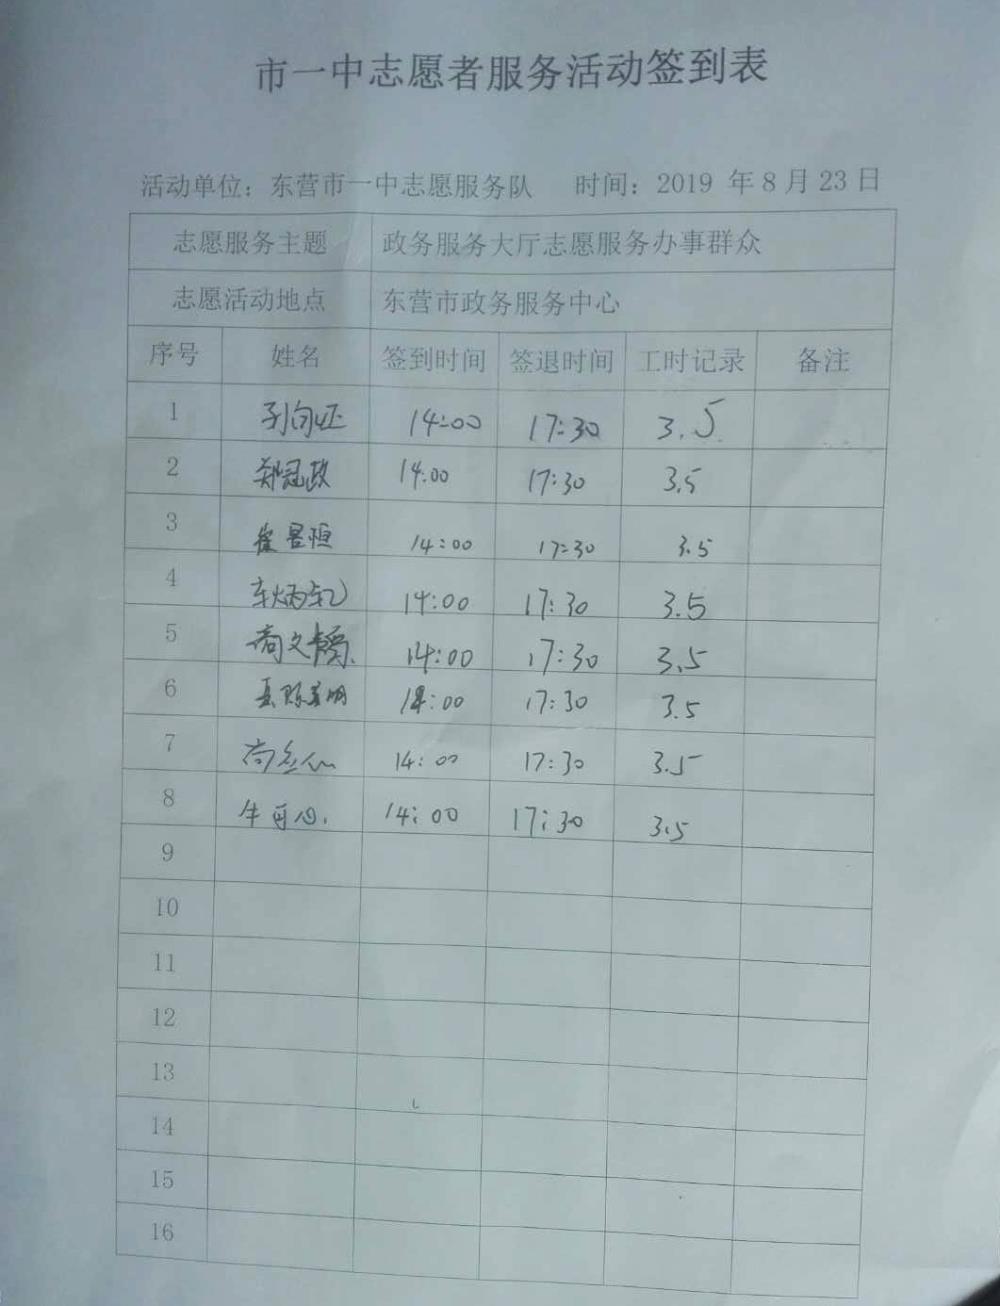 市一中志愿者服务活动签到表
活动单位：东营市一中志愿服务队 时间：2019 年 8 月 23 日
志愿服务主题 政务服务大厅志愿服务办事群众
志愿活动地点 东营市政务服务中心
序号 姓名 签到时间 签退时间 工时记录 备注
1 14:00 17:30 3.5
2 郑冠政 14:00 17:30 3.5
3 崔昱恒 14:00 17:30 3.5
4 车炳乾 14:00 17:30 3.5
5 14:00 17:30 3.5
6 14:00 17:30 3.5
7 14:00 17:30 3.5
8 牛可心 14:00 17:30 3.5
9
10
11
12
13
14
15
16